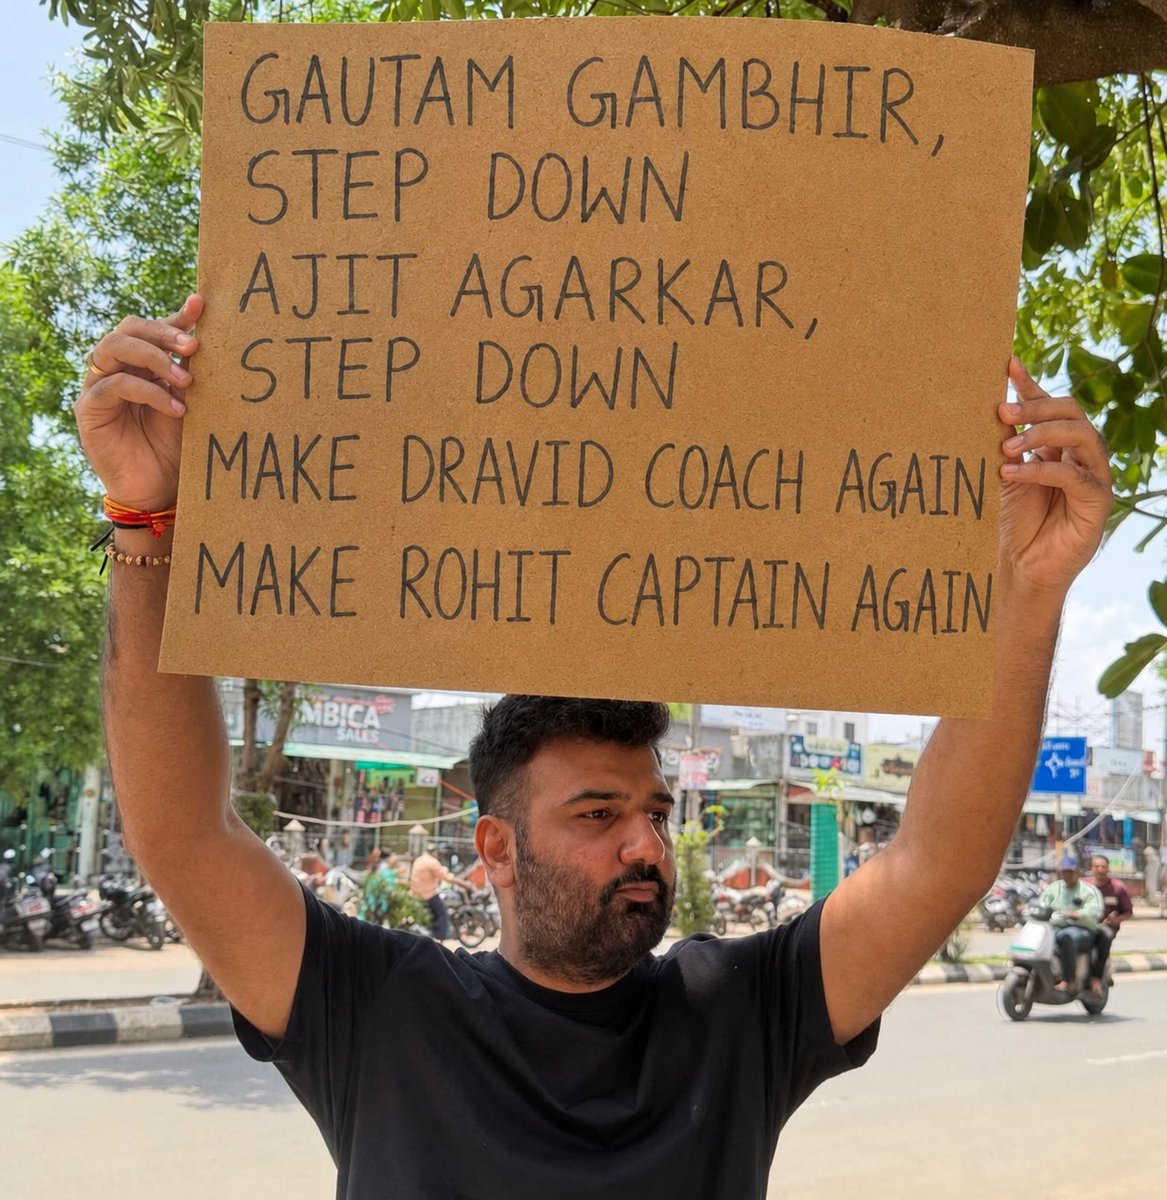 GAUTAM GAMBHIR,
STEP DOWN
AJIT AGARKAR,
STEP DOWN
MAKE DRAVID COACH AGAIN
MAKE ROHIT CAPTAIN AGAIN
MBICA
SALES
22